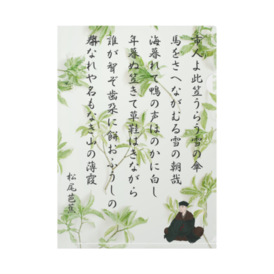 市人よ此笠うらう雪の傘
馬をさへながむる雪の朝哉
海暮れて鴨の声ほのかに白し
年暮ぬ笠きて草鞋はきながら
誰が聟ぞ歯朶に餅おふうしの年
春なれや名もなき山の薄霞
松尾芭蕉